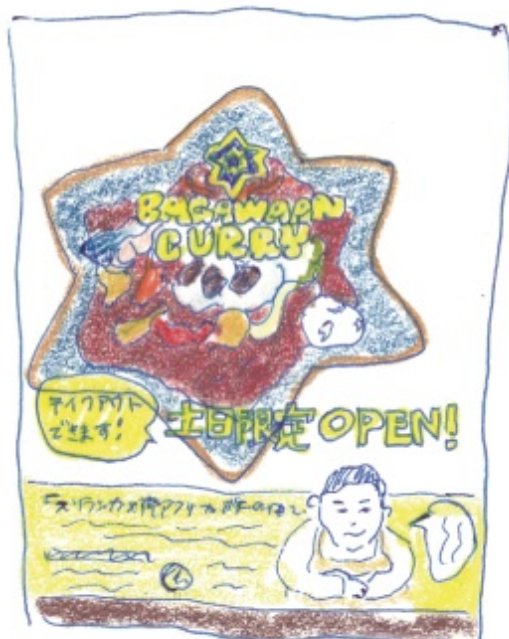 BAGAWAAN
CURRY
テイクアウト
できます!
土日限定 OPEN!
「スリランカ×南アフリカ